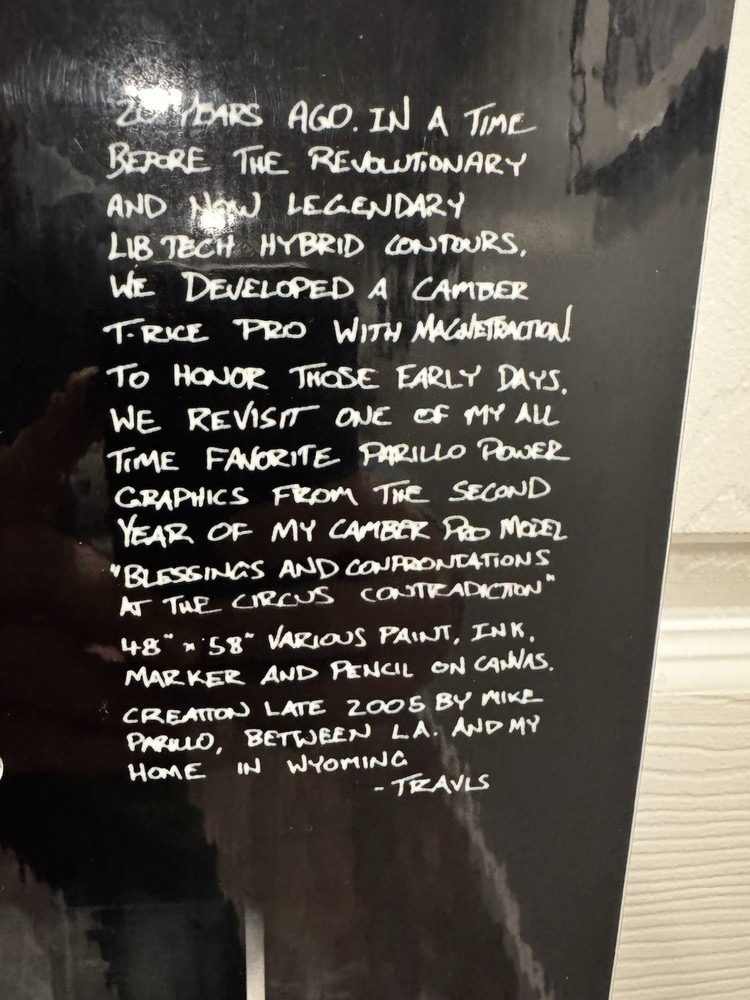 20 YEARS AGO. IN A TIME
BEFORE THE REVOLUTIONARY
AND NOW LEGENDARY
LIB TECH HYBRID CONTOURS,
WE DEVELOPED A CAMBER
T.RICE PRO WITH MAGNETRACTION.
TO HONOR THOSE EARLY DAYS,
WE REVISIT ONE OF MY ALL
TIME FAVORITE PARILLO POWER
GRAPHICS FROM THE SECOND
YEAR OF MY CAMBER PRO MODEL
"BLESSINGS AND CONFRONTATIONS
AT THE CIRCUS CONTRADICTION"
48" x 58" VARIOUS PAINT, INK,
MARKER AND PENCIL ON CANVAS.
CREATION LATE 2005 BY MIKE
PARILLO, BETWEEN L.A. AND MY
HOME IN WYOMING
- TRAVIS